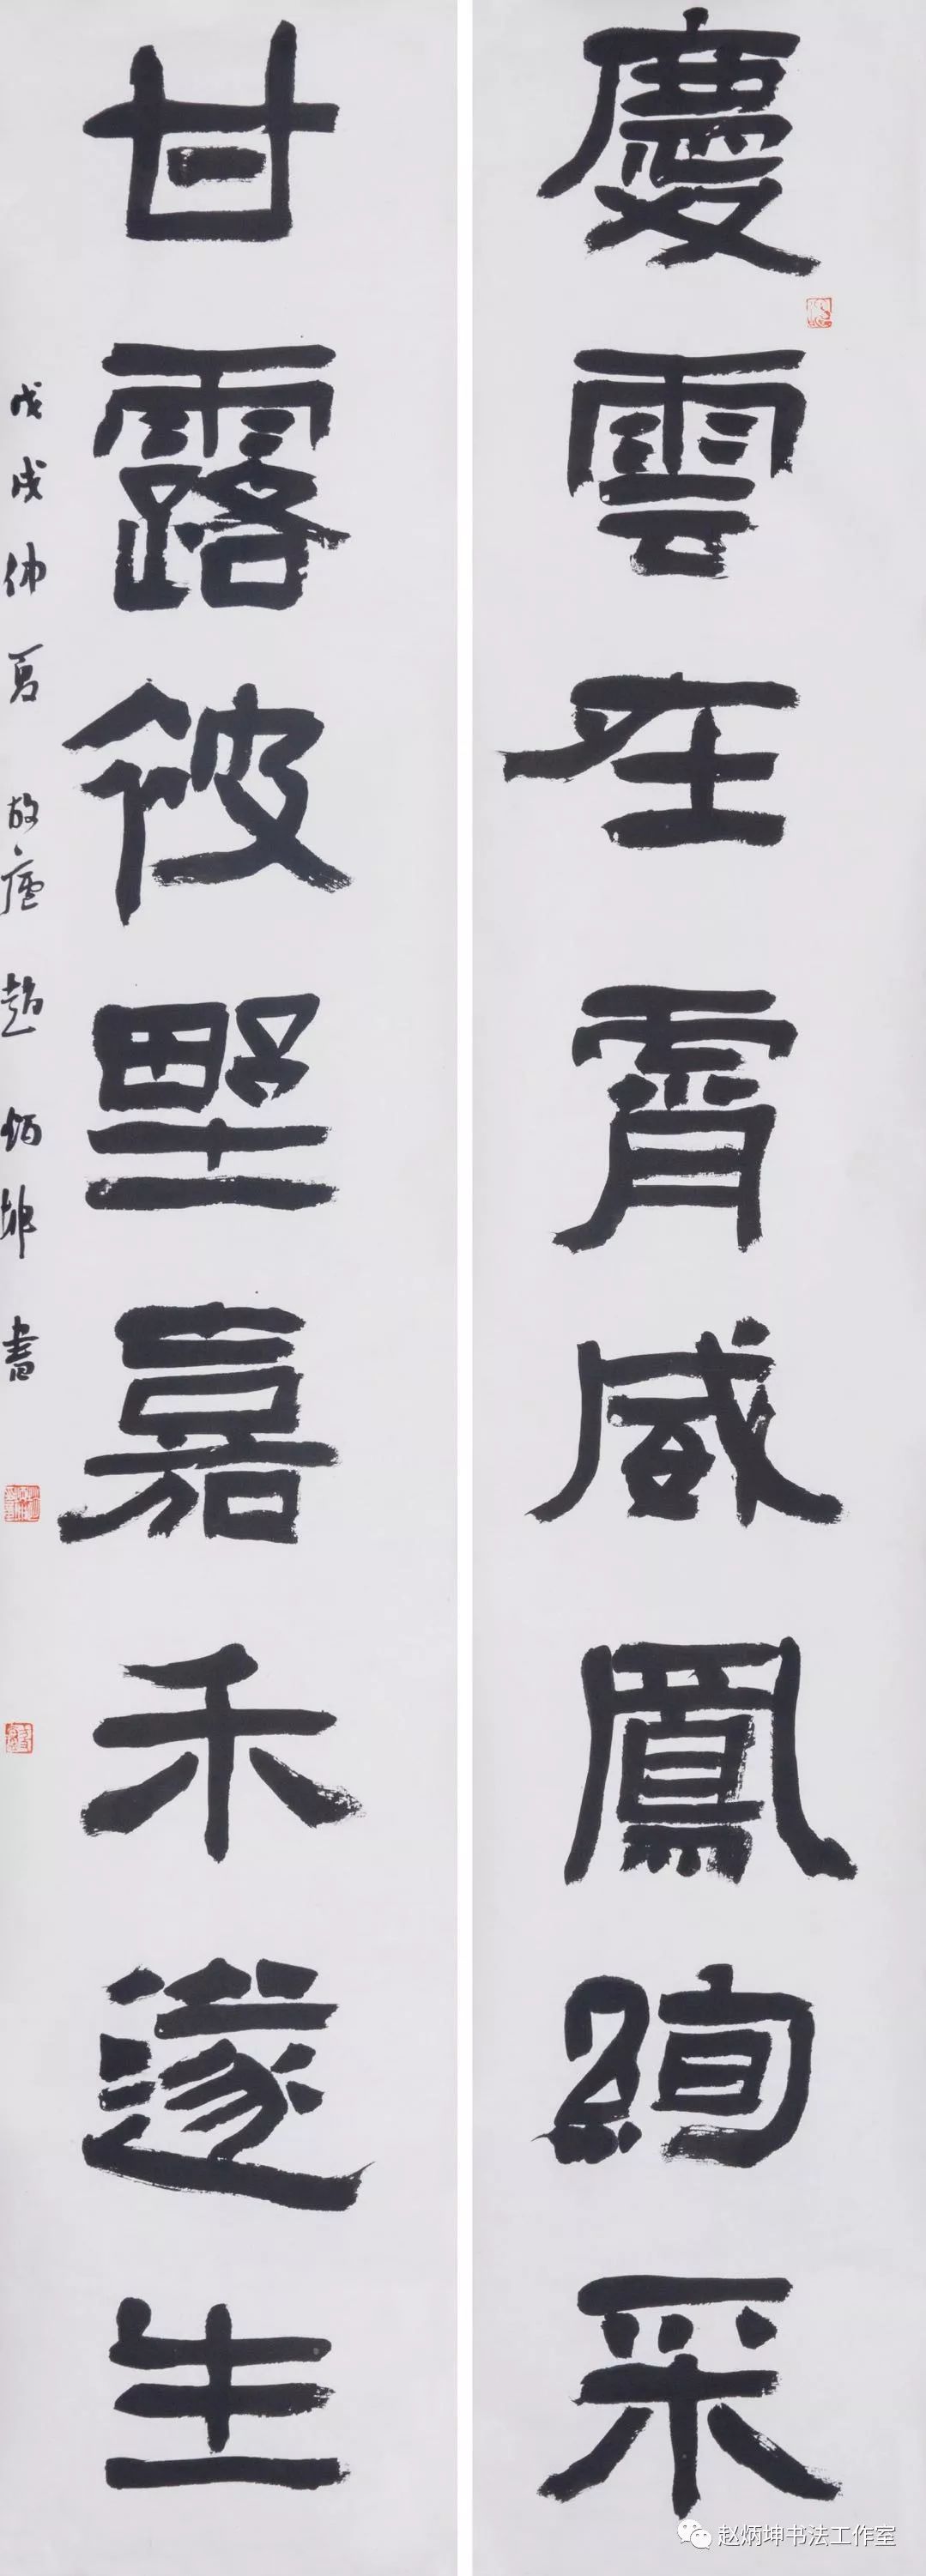 慶雲在霄威鳳絢采
甘露被野嘉禾遂生
戊戌仲夏故廬趙炳坤書
赵炳坤书法工作室